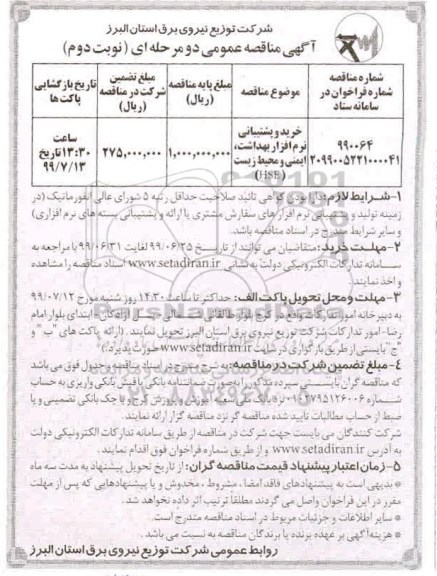 شرکت توزیع نیروی برق استان البرز
آگهی مناقصه عمومی دو مرحله ای (نوبت دوم)
شماره مناقصه
شماره فراخوان در
سامانه ستاد
موضوع مناقصه
مبلغ پایه مناقصه
(ریال)
مبلغ تضمین
شرکت در مناقصه
(ریال)
تاریخ بازگشایی
پاکت ها
۹۹۰۰۶۴
۲۰۹۹۰۰۵۲۲۱۰۰۰۰۴۱
خرید و پشتیبانی
نرم افزار بهداشت،
ایمنی و محیط زیست
(HSE)
۱,۰۰۰,۰۰۰,۰۰۰
۲۷۵,۰۰۰,۰۰۰
ساعت
۱۳:۳۰ تاریخ
۹۹/۷/۱۳
۱- شرایط لازم: دارا بودن گواهی تائید صلاحیت حداقل رتبه ۵ شورای عالی انفورماتیک (در
زمینه تولید و پشتیبانی نرم افزار های سفارش مشتری یا ارائه و پشتیبانی بسته های نرم افزاری)
و سایر شرایط مندرج در اسناد مناقصه باشد.
۲- مهلت خرید: متقاضیان می توانند از تاریخ ۹۹/۰۶/۲۵ لغایت ۹۹/۰۶/۳۱ با مراجعه به
سامانه تدارکات الکترونیکی دولت به نشانی www.setadiran.ir اسناد مناقصه را مشاهده
و اخذ نمایند.
۳- مهلت و محل تحویل پاکت الف: حداکثر تا ساعت ۱۴:۳۰ روز شنبه مورخ ۹۹/۰۷/۱۲
به دبیرخانه امور تدارکات واقع در کرج بلوار طالقانی شمالی ابتدای بلوار امام
رضا- امور تدارکات شرکت توزیع نیروی برق استان البرز تحویل نمایند. (ارائه پاکت های "ب" و
"ج" بایستی از طریق بارگزاری در سایت www.setadiran.ir صورت پذیرد.)
۴- مبلغ تضمین شرکت در مناقصه: به شرح مندرج در اسناد مناقصه و جدول فوق می باشد
که مناقصه گران بایستی سپرده مذکور را به صورت ضمانتنامه بانکی یا فیش بانکی واریزی به حساب
شماره نزد بانک ملی شعبه آموزش و پرورش کرج و یا چک بانکی تضمینی و یا
ضبط از حساب مطالبات تایید شده مناقصه گر نزد مناقصه گزار ارائه نمایند.
شرکت کنندگان می بایست جهت شرکت در مناقصه از طریق سامانه تدارکات الکترونیکی دولت
به آدرس www.setadiran.ir و از طریق شماره فراخوان فوق اقدام نمایند.
۵- زمان اعتبار پیشنهاد قیمت مناقصه گران: از تاریخ تحویل پیشنهاد به مدت سه ماه
* بدیهی است به پیشنهادهای فاقد امضا، مشروط، مخدوش و یا پیشنهادهایی که پس از مهلت
مقرر در این فراخوان واصل می گردند مطلقا ترتیب اثر داده نخواهد شد.
* سایر اطلاعات و جزئیات مربوط در اسناد مناقصه مندرج است.
* هزینه آگهی بر عهده برنده یا برندگان مناقصه به نسبت می باشد.
روابط عمومی شرکت توزیع نیروی برق استان البرز